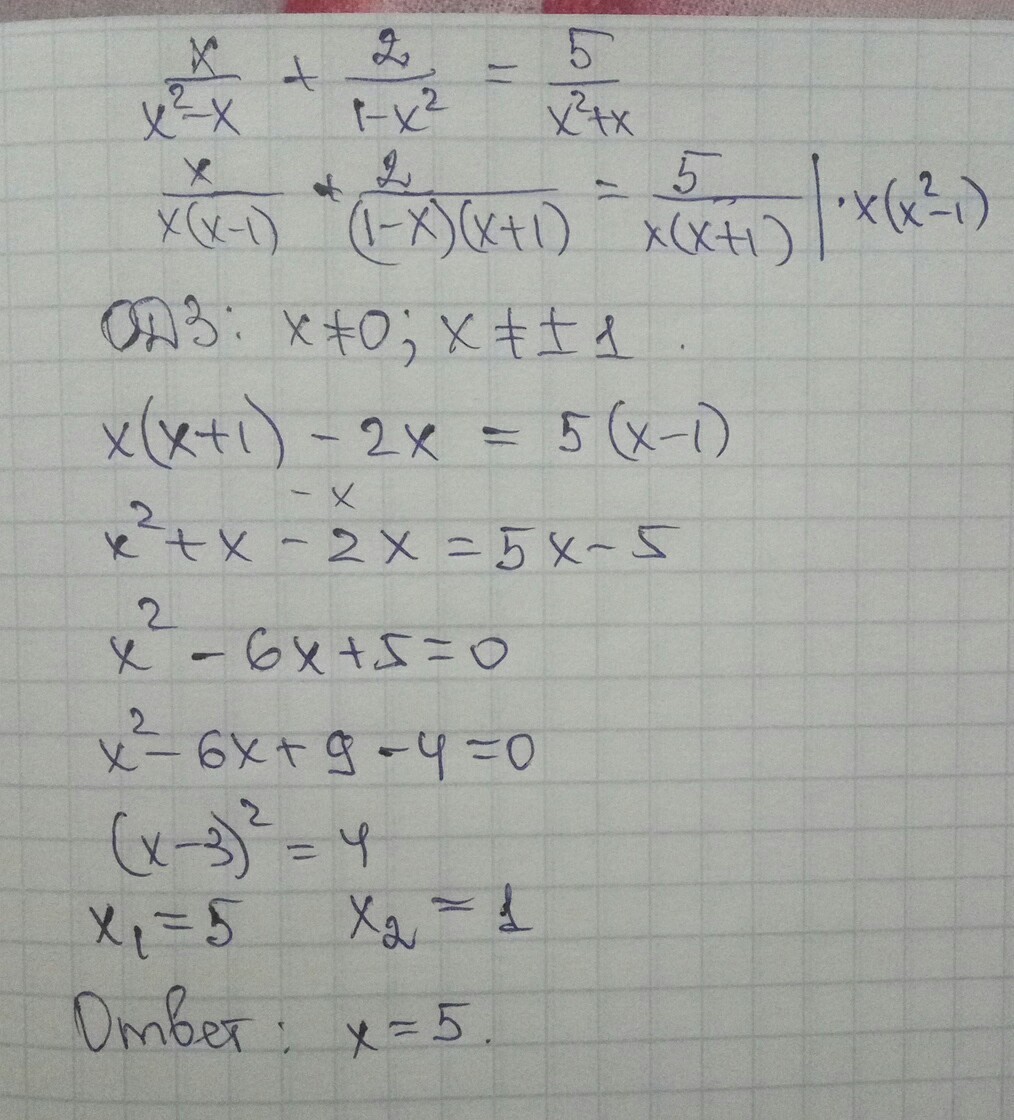 x/(x²-x) + 2/(1-x²) = 5/(x²+x)
x/(x(x-1)) + 2/((1-x)(x+1)) = 5/(x(x+1)) | · x(x²-1)
ОДЗ: x≠0; x≠±1.
x(x+1) - 2x = 5(x-1)
-x
x²+x-2x=5x-5
x²-6x+5=0
x²-6x+9-4=0
(x-3)²=4
x₁=5 x₂=1
Ответ: x=5.